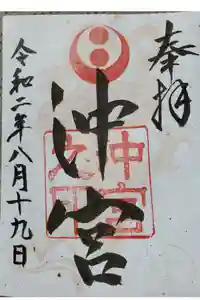 奉拝
沖宮
令和二年八月十九日